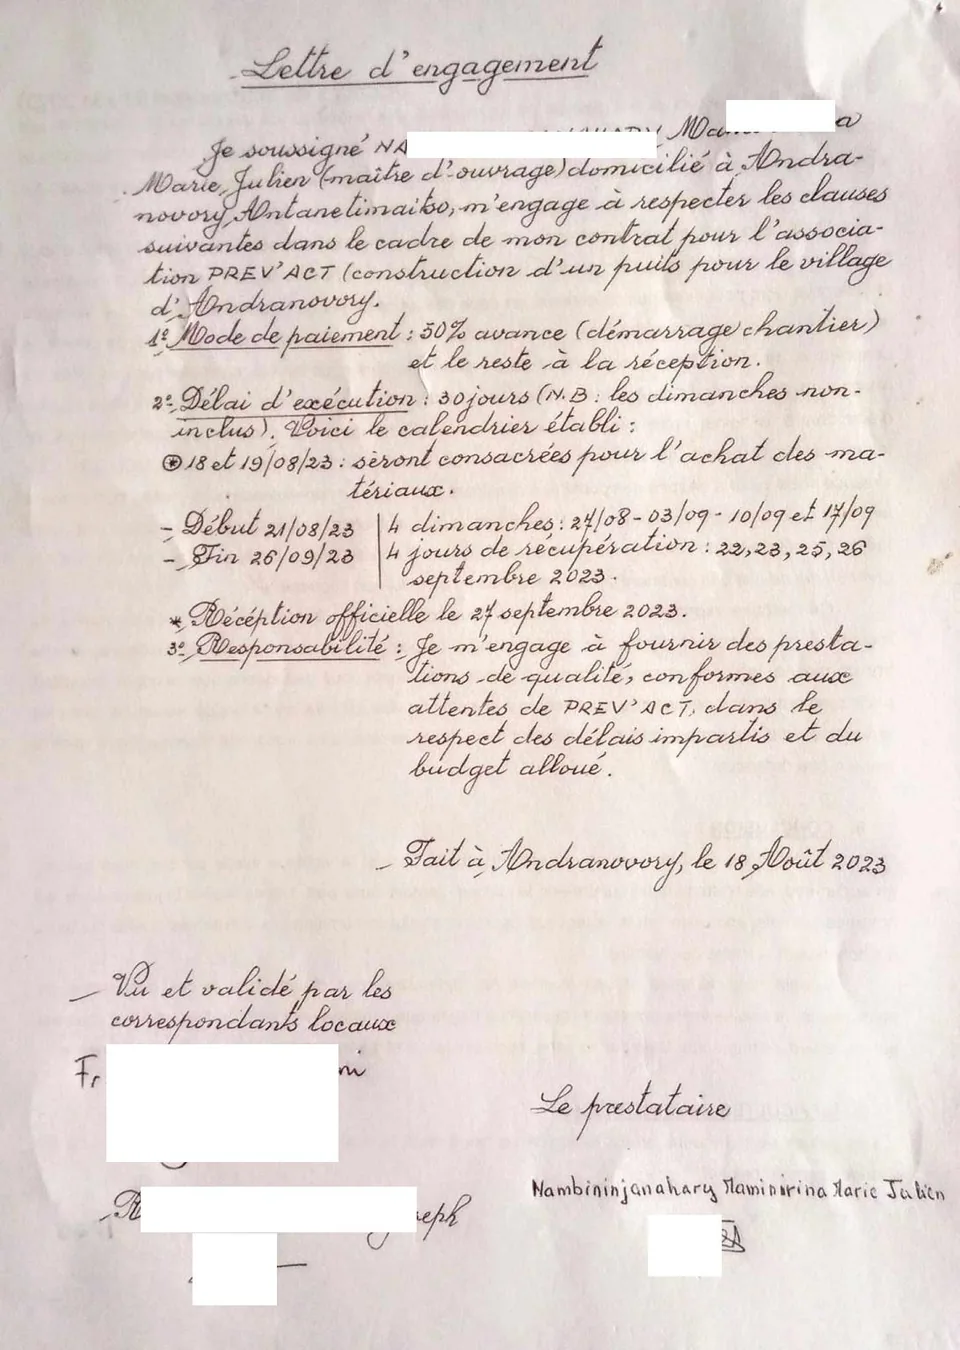 Lettre d'engagement
Je soussigné NA
Marie Julien (maître d'ouvrage) domicilié à Andra-
novory Antanetimaitso, m'engage à respecter les clauses
suivantes dans le cadre de mon contrat pour l'associa-
tion PREV'ACT (construction d'un puits pour le village
d'Andranovory.
1º Mode de paiement : 50% avance (démarrage chantier)
et le reste à la réception.
2º Délai d'exécution : 30 jours (N.B : les dimanches non-
inclus). Voici le calendrier établi :
18 et 19/08/23 : seront consacrées pour l'achat des ma-
tériaux.
- Début 21/08/23 | 4 dimanches : 27/08 - 03/09 - 10/09 et 17/09
- Fin 26/09/23 | 4 jours de récupération : 22, 23, 25, 26
septembre 2023.
* Récéption officielle le 27 septembre 2023.
3º Responsabilité : Je m'engage à fournir des presta-
tions de qualité, conformes aux
attentes de PREV'ACT, dans le
respect des délais impartis et du
budget alloué.
Fait à Andranovory, le 18 Août 2023
Vu et validé par les
correspondants locaux
Fr
Le prestataire
Nambininjanahary Maminirina Marie Julien
R